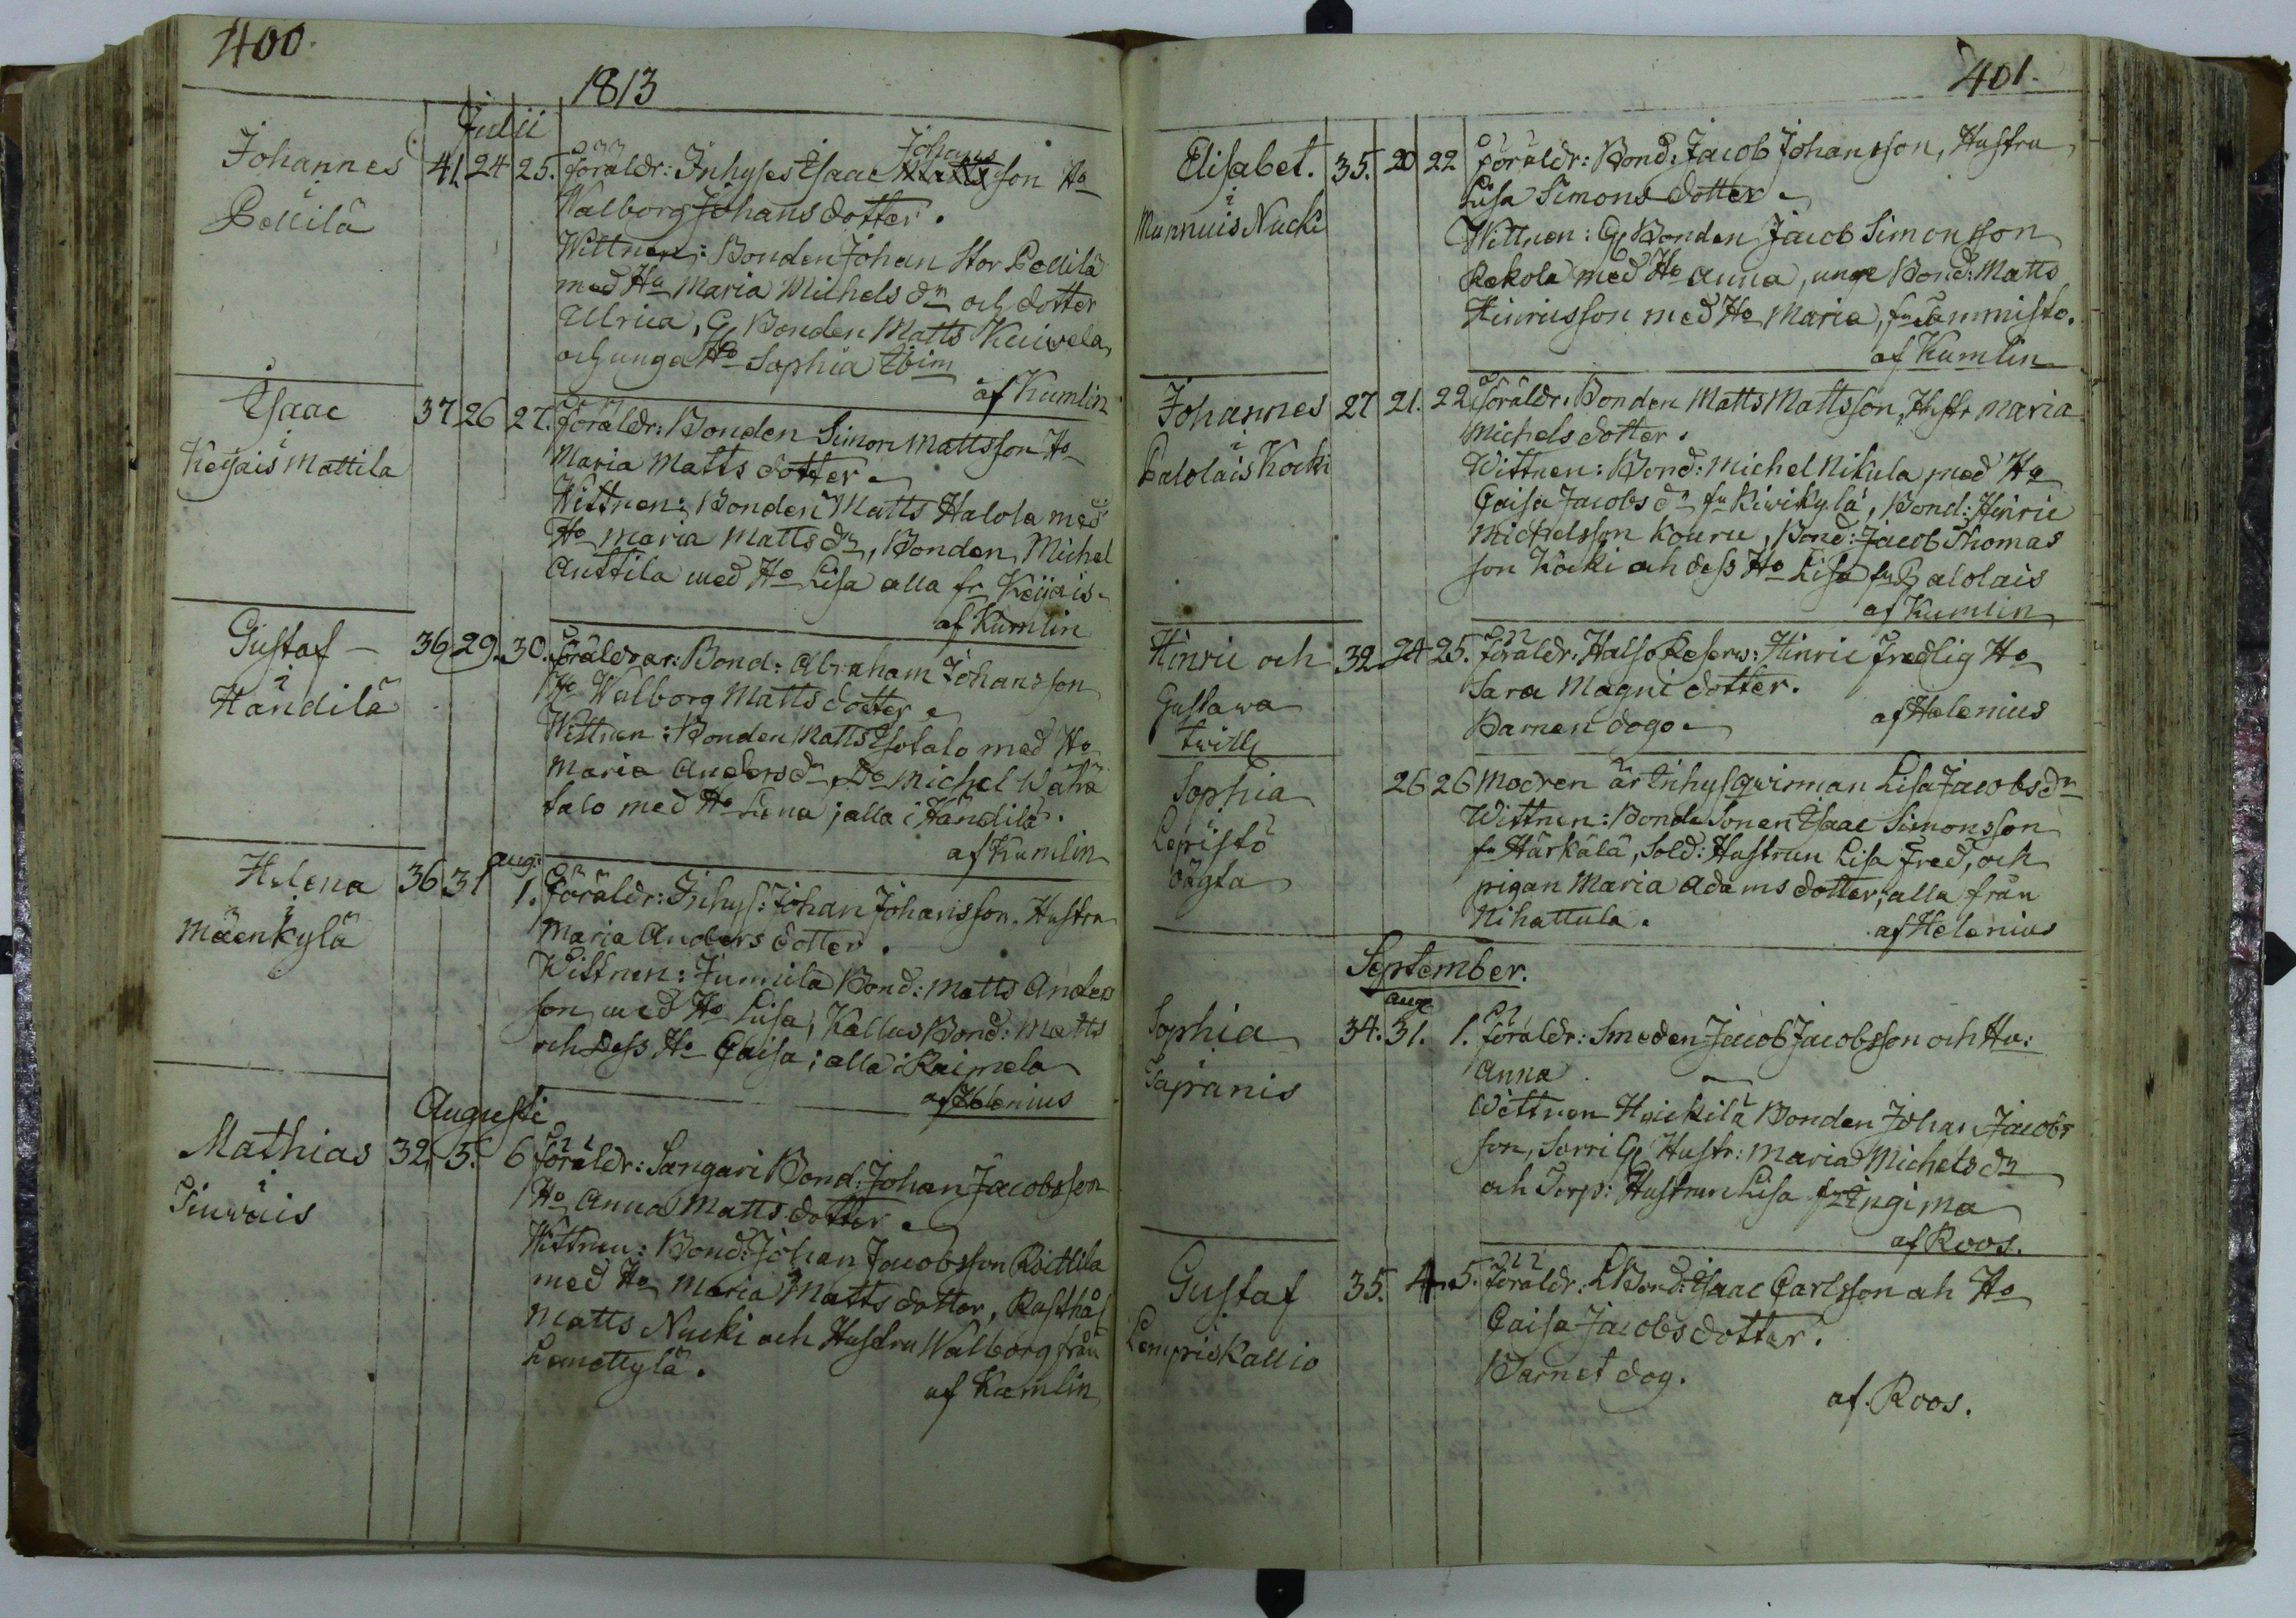 400.
1813
Julii
Johannes 41. 24 25. föräldr: Inhyses Isaac Johans Matts son Ho
i Walborg Johans dotter.
Pellilä
Wittnen: Bonden Johan Stor Pellilä
med Ho Maria Michels dr och dotter
Ulrica, Gl Bonden Matts Kuivela,
och unga Ho Sophia ibim
af Kumlin
Isaac 37 26 27. föräldr: Bonden Simon Mattsson Ho
i Maria Matts dotter
Keijais Mattila
Wittnen: Bonden Matts Halola med
Ho Maria Matts dr, Bonden Michel
Anttila med Ho Lisa alla fr Keijais.
af Kumlin
Gustaf 36 29. 30. föräldrar: Bond: Abraham Johansson
i Ho Walborg Matts dotter
Händilä
Wittnen: Bonden Matts Isotalo med Ho
Maria Anders dr, Do Michel Wähä
talo med Ho Lena; alla i Händilä.
af Kumlin
Helena 36 31 aug: 1. föräldr: Inhys: Johan Johansson. Hustru
i Maria Anders dotter.
Mäenkylä
Wittnen: Junnila Bond: Matts Anders
son med Ho Lisa, Kallus Bond: Matts
och dess Ho Caisa; alla i Raimela
af Helenius
Augusti
Mathias 32. 5. 6 föräldr: Sangari Bond: Johan Jacobsson
i Ho Anna Matts dotter
Sinvais
Wittnen: Bond: Johan Jacobsson Roittila
med Ho Maria Matts dotter, Rusthål
Matts Nucki och Hustru Walborg från
af Kumlin
401.
Elisabet. 35. 20 22 föräldr: Bond: Jacob Johansson, Hustru
i Lisa Simons dotter
Munnuis Nucki
Wittnen: Gl Bonden Jacob Simonsson
Kekola med Ho Anna, unge Bond: Matts
Hinricsson med Ho Maria, fr Sammisto.
af Kumlin
Johannes 27 21. 22 föräldr: Bonden Matts Mattsson, Hustr Maria
i Michels dotter.
Palolais Kocki
Wittnen: Bond: Michel Nikula med Ho
Caisa Jacobs dr fr Kiwikylä, Bond: Hinric
Michelsson Kouru, Bond: Jacob Thomas
son Köcki och dess Ho Lisa fr Palolais
af Kumlin
Hinric och 32. 24 25. föräldr: Halfo Reserv: Hinric Fredlig Ho
Gustawa Sara Magni dotter.
twill Barnen dogo af Helenius
Sophia 26 26 Modren är Inhysqwinnan Lisa Jacobs dr
i Wittnen: Bonde Sonen Isaac Simonsson
Lepistö fr Härkälä, Sold: Hustrun Lisa Fred, och
oägta pigan Maria Adams dotter; alla från
Nihattula. af Helenius
September.
Sophia 34. aug 31. 1. föräldr: Smeden Jacob Jacobsson och Hu:
i Anna
Taipanis
Wittnen Heickilä Bonden Johan Jacobs
son, Sorri Gl Hustr: Maria Michels dr
och Torp: Hustrun Lisa från Ingima
af Roos.
Gustaf 35. 4. 5. föräldr: L Bond: Isaac Carlsson och Ho
i Caisa Jacobs dotter.
Lempis Kallio
Barnet dog.
af. Roos.